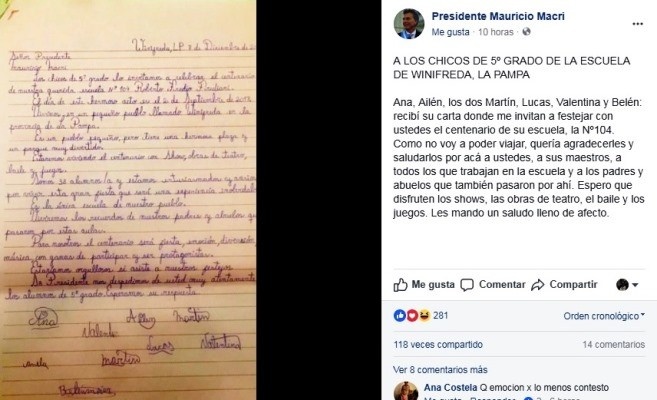 Winifreda, L.P. 8 de Diciembre de
Señor Presidente
Mauricio Macri
Los chicos de 5º grado lo invitamos a celebrar el centenario
de nuestra querida escuela Nº 104
El día de este hermoso acto es el 2 de Septiembre de
Vivimos en un pequeño pueblo llamado Winifreda en la
provincia de La Pampa.
Es un pueblo pequeño, pero tiene una hermosa plaza y
un parque muy divertido.
Estamos el centenario con show, obras de teatro,
baile y juegos.
Somos 32 alumnos/a y estamos entusiasmados y
por esta gran fiesta que será una experiencia inolvidable
Es la única escuela de nuestro pueblo.
los recuerdos de nuestros padres y abuelos que
pasaron por estas aulas.
Para nosotros el centenario será fiesta, emoción, diversión,
música, con ganas de participar y ser protagonistas.
Estaríamos orgullosos si asiste a nuestros festejos
Sr Presidente nos despedimos de usted muy atentamente
los alumnos de 5º grado. Esperamos su respuesta.
Ana Martín
Lucas
Martín
Presidente Mauricio Macri
Me gusta · 10 horas ·
A LOS CHICOS DE 5º GRADO DE LA ESCUELA
DE WINIFREDA, LA PAMPA
Ana, Ailén, los dos Martín, Lucas, Valentina y Belén:
recibí su carta donde me invitan a festejar con
ustedes el centenario de su escuela, la Nº104.
Como no voy a poder viajar, quería agradecerles y
saludarlos por acá a ustedes, a sus maestros, a
todos los que trabajan en la escuela y a los padres y
abuelos que también pasaron por ahí. Espero que
disfruten los shows, las obras de teatro, el baile y los
juegos. Les mando un saludo lleno de afecto.
Me gusta Comentar Compartir
281 Orden cronológico
118 veces compartido 14 comentarios
Ver 8 comentarios más
Ana Costela Q emocion x lo menos contesto